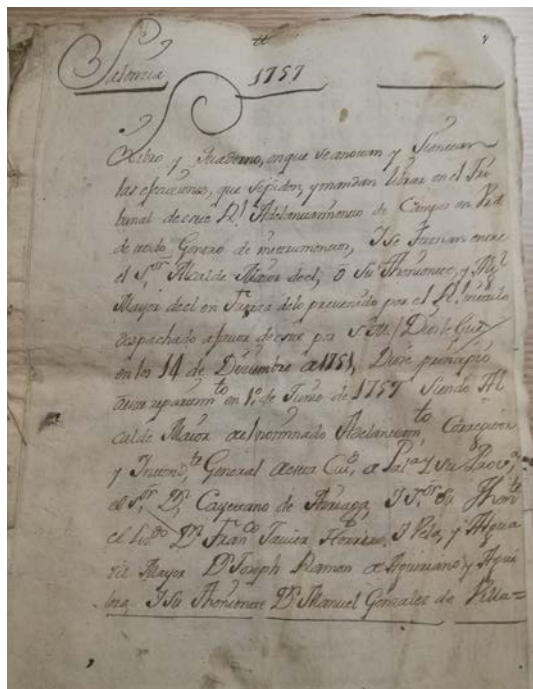 Palencia 1757
Libro y Quaderno, en que se anotan y Sientan
las ejecuciones, que se piden, y mandan librar en el Tri
bunal de este Rl. Adelantamiento de Campos en
de Genero de instrumentos, I se Turnan entre
el Sor. Alcalde Maior del, o su Theniente, y
Mayor del en fuerza delo prevenido por el Rl.
despachado a favor de este por S. M. / Dios le Gue /
en los 14 de Diciembre de 1751, Diose principio
en 1o. de Junio de 1757 Siendo Al
calde Maior del nominado Adelantamto Corregidor
y Intendte General de esta Ciud. de Pala. y su Prova.
el Sor. Dn. Cayetano de Arriaga, I Por su Thente
el Lizdo Dn. Franco Javier Herrero, I Vela, y Algua
cil Mayor Dn. Joseph Ramon de y
I su Theniente Dn. Manuel Gonzalez de Villa=